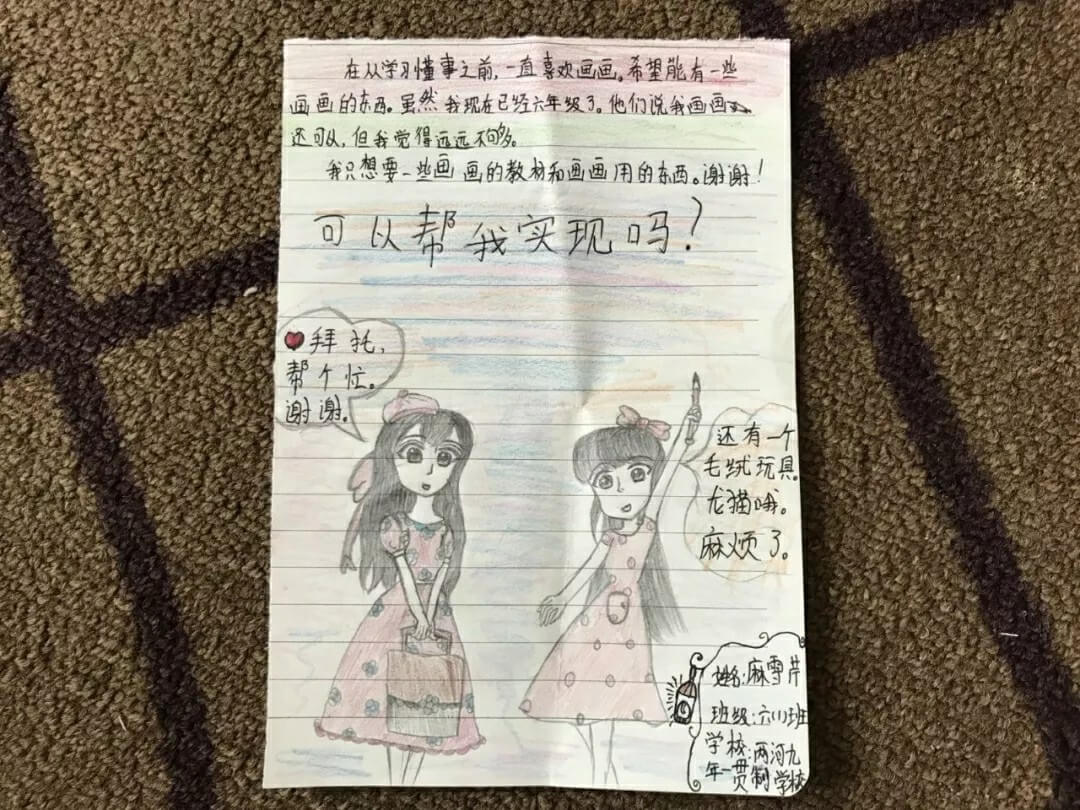 在从学习懂事之前，一直喜欢画画。希望能有一些
画画的东西。虽然我现在已经六年级了。他们说我画画
还可以，但我觉得远远不够。
我只想要一些画画的教材和画画用的东西。谢谢！
可以帮我实现吗？
拜托，
帮个忙。
谢谢。
还有一个
毛绒玩具。
龙猫哦。
麻烦了。
姓名：麻雪芹
班级：六(1)班
学校：两河九
年一贯制学校